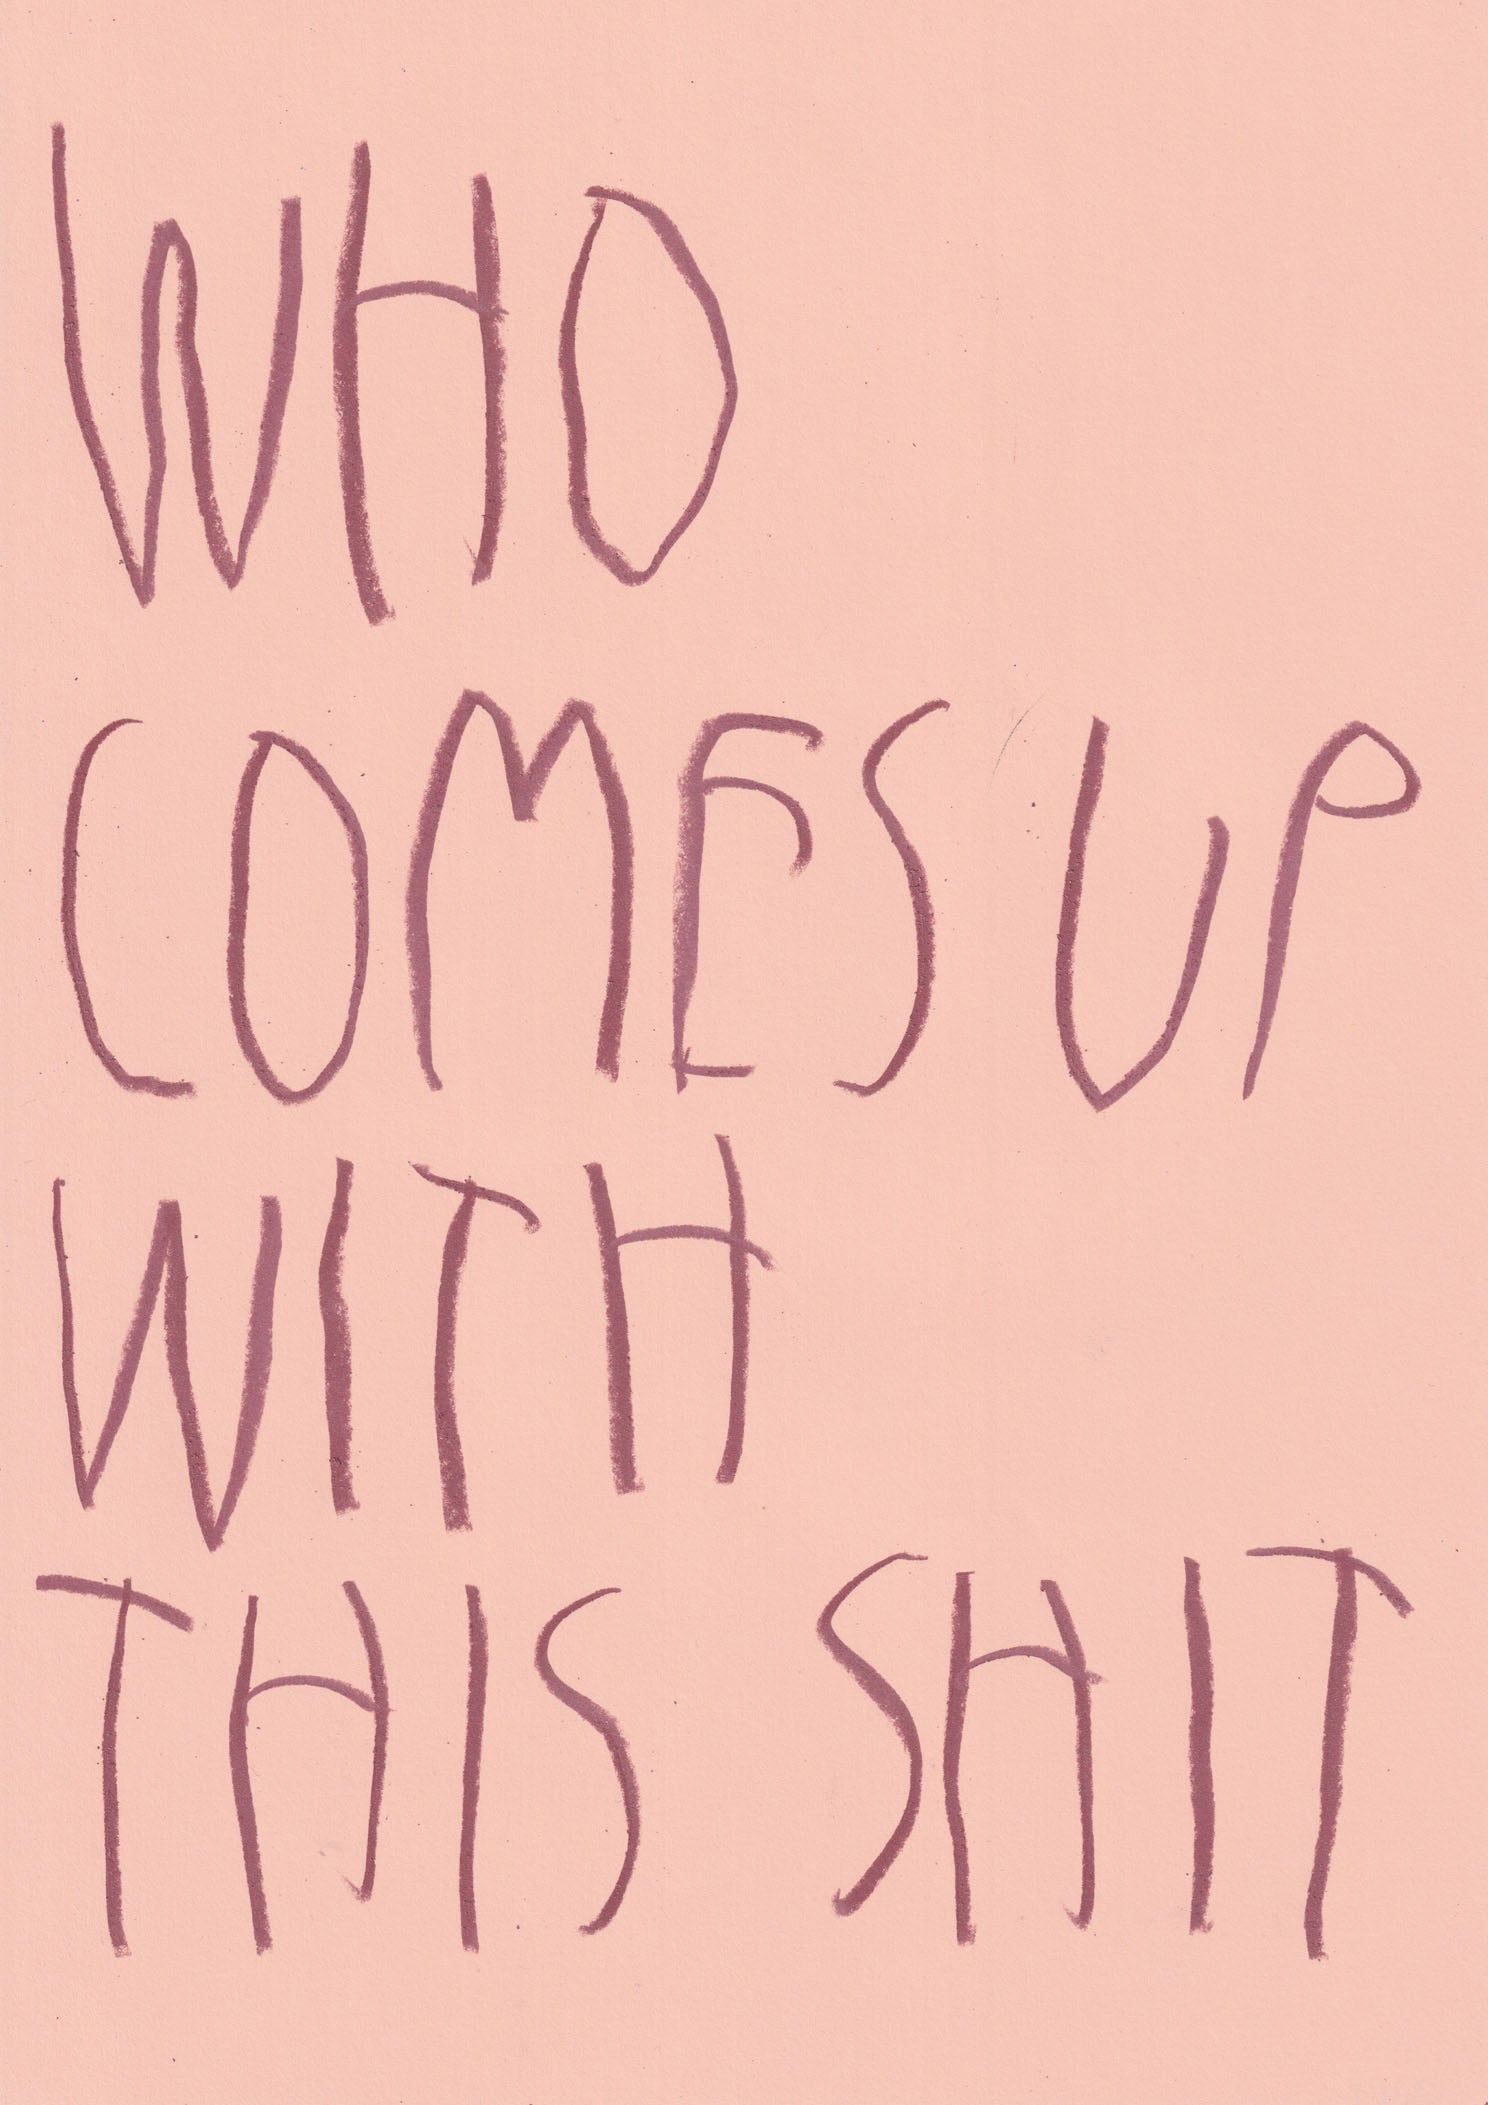 WHO
COMES UP
WITH
THIS SHIT